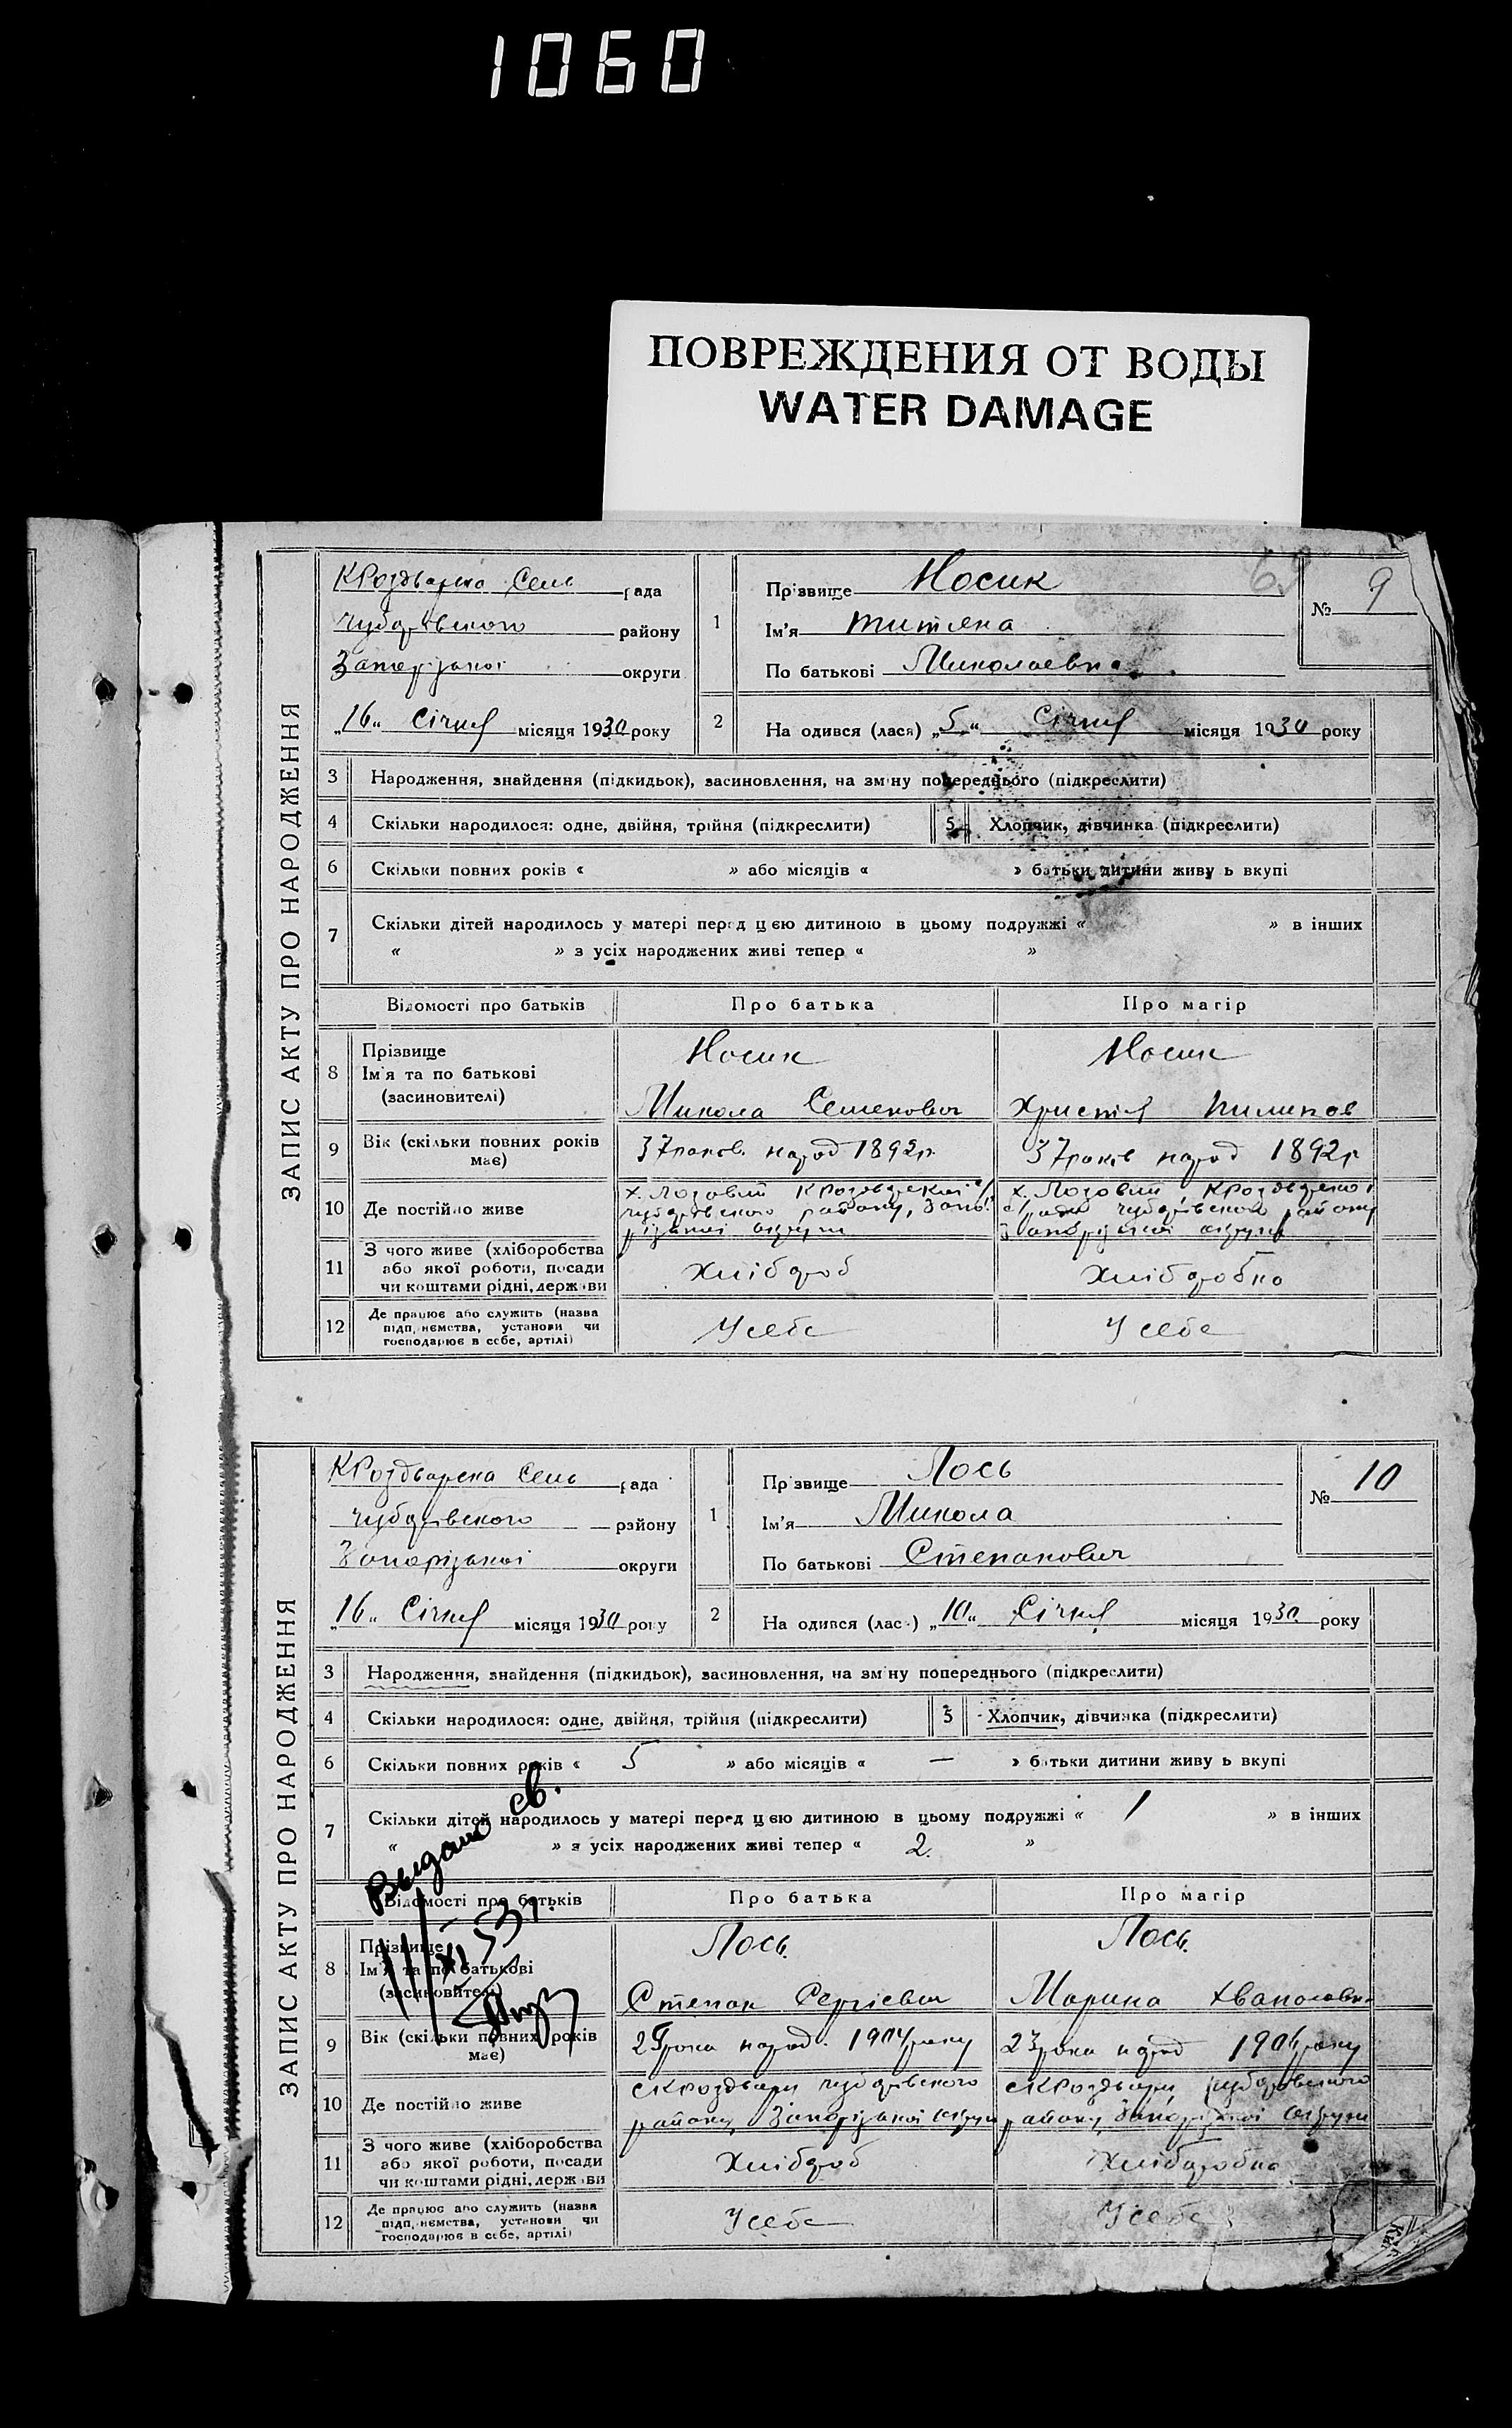 1060
ПОВРЕЖДЕНИЯ ОТ ВОДЫ
WATER DAMAGE
69
ЗАПИС АКТУ ПРО НАРОДЖЕННЯ
КРоздварска Сель рада
Чубарівського району
Запорізької округи
„16“ Січня місяця 1930 року
1
Прізвище Носик
Ім'я Титяна
По батькові Миколаевна
№ 9
2
На одився (лася) „5“ Січня місяця 1930 року
3 Народження, знайдення (підкидьок), засиновлення, на зміну попереднього (підкреслити)
4 Скільки народилося: одне, двійня, трійня (підкреслити) 5 Хлопчик, дівчинка (підкреслити)
6 Скільки повних років « » або місяців « » батьки дитини живу ь вкупі
7 Скільки дітей народилось у матері перед цією дитиною в цьому подружжі « » в інших
« » з усіх народжених живі тепер « »
Відомості про батьків Про батька Про матір
8 Прізвище Носик Носик
Ім'я та по батькові
(засиновителі) Микола Семенович Христія Пилипов
9 Вік (скільки повних років має) 37 років народ 1892р. 37 років народ 1892р
10 Де постійно живе х. Лозовий х. Лозовий
Чубарівського району, Запо- Чубарівського району
різької округи Запорізької округи
11 З чого живе (хліборобства
або якої роботи, посади
чи коштами рідні, держави Хлібороб Хліборобка
12 Де працює або служить (назва
підп, ємства, установи чи
господарює в себе, артілі) У себе У себе
ЗАПИС АКТУ ПРО НАРОДЖЕННЯ
КРоздварска Сель рада
Чубарівського району
Запорізької округи
„16“ Січня місяця 1930 року
1
Прізвище Лось
Ім'я Микола
По батькові Степанович
№ 10
2
На одився (лас ) „10“ Січня місяця 1930 року
3 Народження, знайдення (підкидьок), засиновлення, на зміну попереднього (підкреслити)
4 Скільки народилося: одне, двійня, трійня (підкреслити) 5 Хлопчик, дівчинка (підкреслити)
6 Скільки повних років « 5 » або місяців « — » батьки дитини живу ь вкупі
7 Скільки дітей народилось у матері перед цією дитиною в цьому подружжі « 1 » в інших
« » з усіх народжених живі тепер « 2. »
Выдано св.
Відомості про батьків Про батька Про матір
8 Прізвище Лось. Лось.
Ім'я та по батькові
(засиновителі) Степан Сергієвич Марина
9 Вік (скільки повних років має) 25 рока народ. 1904 року 23 рока народ 1906 року
10 Де постійно живе с КРоздвари Чубарівського с КРоздвари Чубарівського
району Запорізької округи району Запорізької округи
11 З чого живе (хліборобства
або якої роботи, посади
чи коштами рідні, держави Хлібороб Хліборобка
12 Де працює або служить (назва
підп, ємства, установи чи
господарює в себе, артілі) У себе У себе